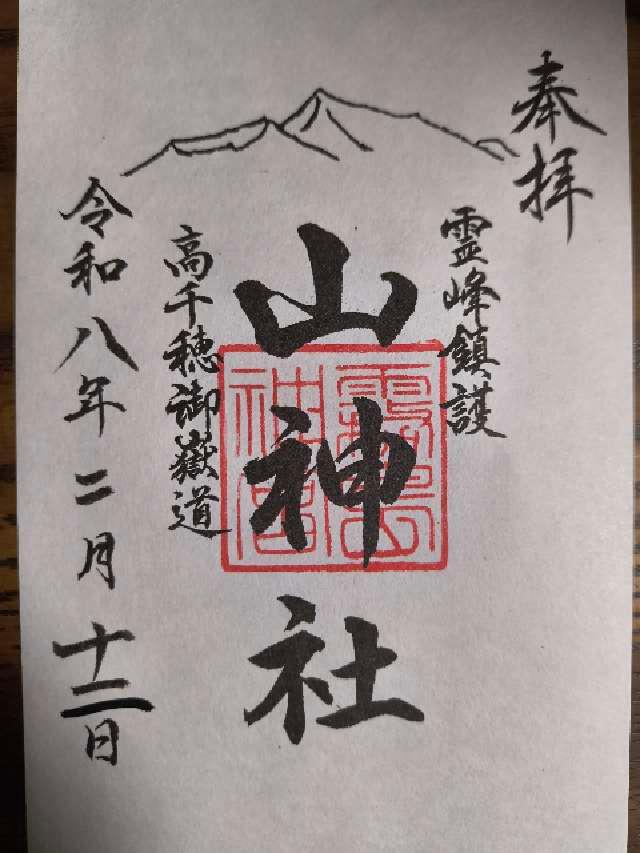 奉拝
霊峰鎮護
山神社
霧島神宮
高千穂御嶽道
令和八年二月十二日